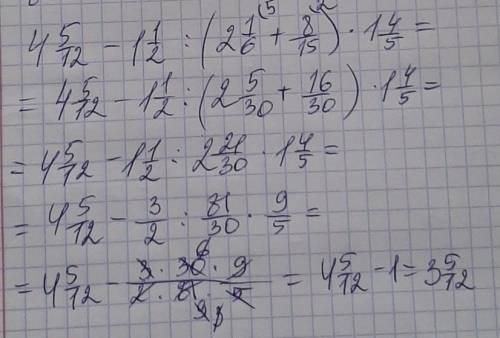 4 5/12 − 1 1/2 : (2 1/6 (5 + 8/15 (2) · 1 4/5 =
= 4 5/12 − 1 1/2 : (2 5/30 + 16/30) · 1 4/5 =
= 4 5/12 − 1 1/2 : 2 21/30 · 1 4/5 =
= 4 5/12 − 3/2 : 81/30 · 9/5 =
= 4 5/12 − (3 · 30 · 9)/(2 · 81 · 5) = 4 5/12 − 1 = 3 5/12